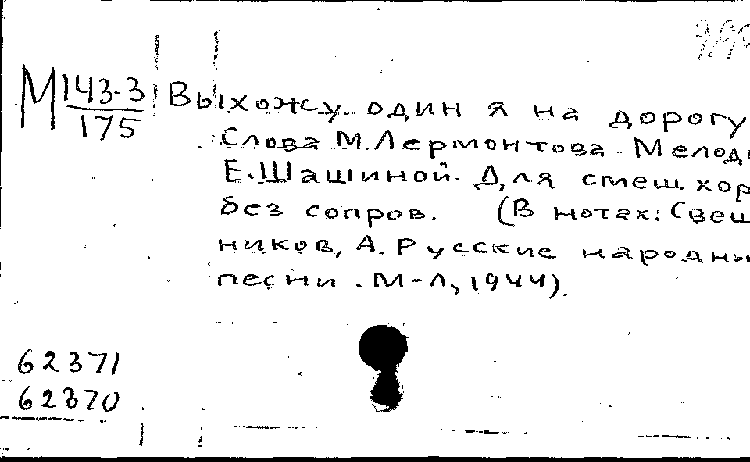 М 143-3 Выхожу один я на дорогу
175
Слова М. Лермонтова. Мелод
Е. Шашиной. Для смеш. хор
без сопров. (В нотах: Свеш
ников, А. Русские народны
песни. М-Л, 1944).
62371
62370